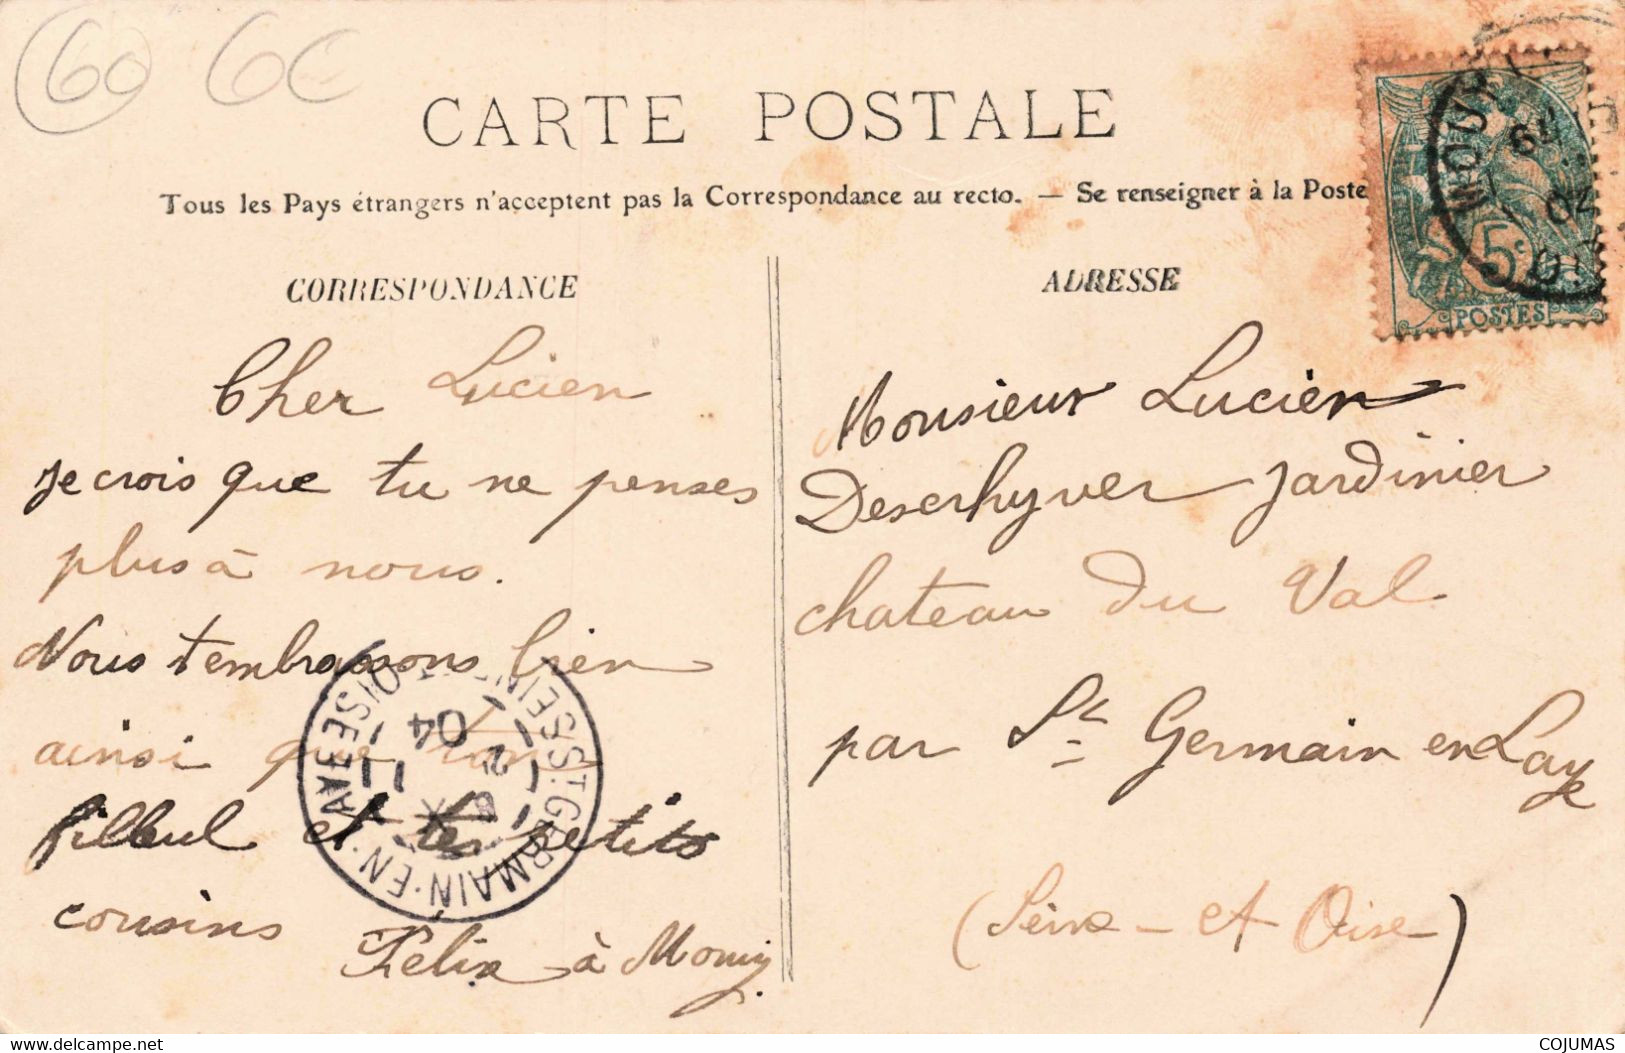 60 60
CARTE POSTALE
Tous les Pays étrangers n'acceptent pas la Correspondance au recto. — Se renseigner à la Poste
CORRESPONDANCE
Cher Lucien
je crois que tu ne penses
plus à nous.
Nous t'embrassons bien
ainsi que ton
filleul et tes petits
cousins
Félix à Mouy.
ADRESSE
Monsieur Lucien
Deserhyver jardinier
chateau du Val
par St Germain en Laye
(Seine - et Oise)
MOUY
04
5c
POSTES
ST GERMAIN-EN-LAYE
SEINE-ET-OISE
04
COJUMAS